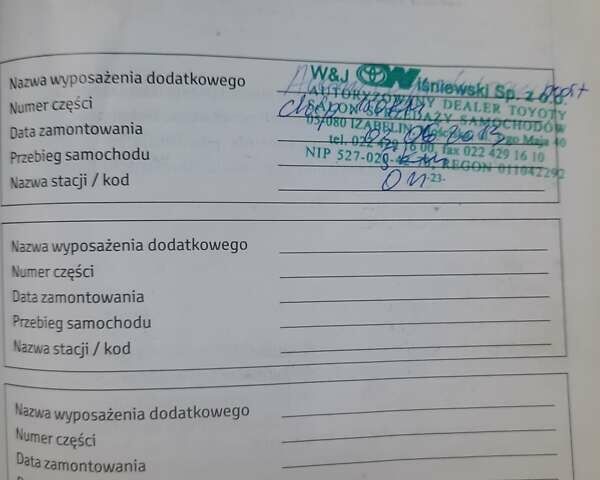 Nazwa wyposażenia dodatkowego
W&J Wiśniewski Sp. z o.o.
Numer części
AUTORYZOWANY DEALER TOYOTY
SALON SPRZEDAŻY SAMOCHODÓW
Data zamontowania
05-080 IZABELIN Maja 40
Przebieg samochodu
tel. 022 429 16 00, fax 022 429 16 10
NIP 527-020- REGON 011042292
Nazwa stacji / kod
-23-
Nazwa wyposażenia dodatkowego
Numer części
Data zamontowania
Przebieg samochodu
Nazwa stacji / kod
Nazwa wyposażenia dodatkowego
Numer części
Data zamontowania